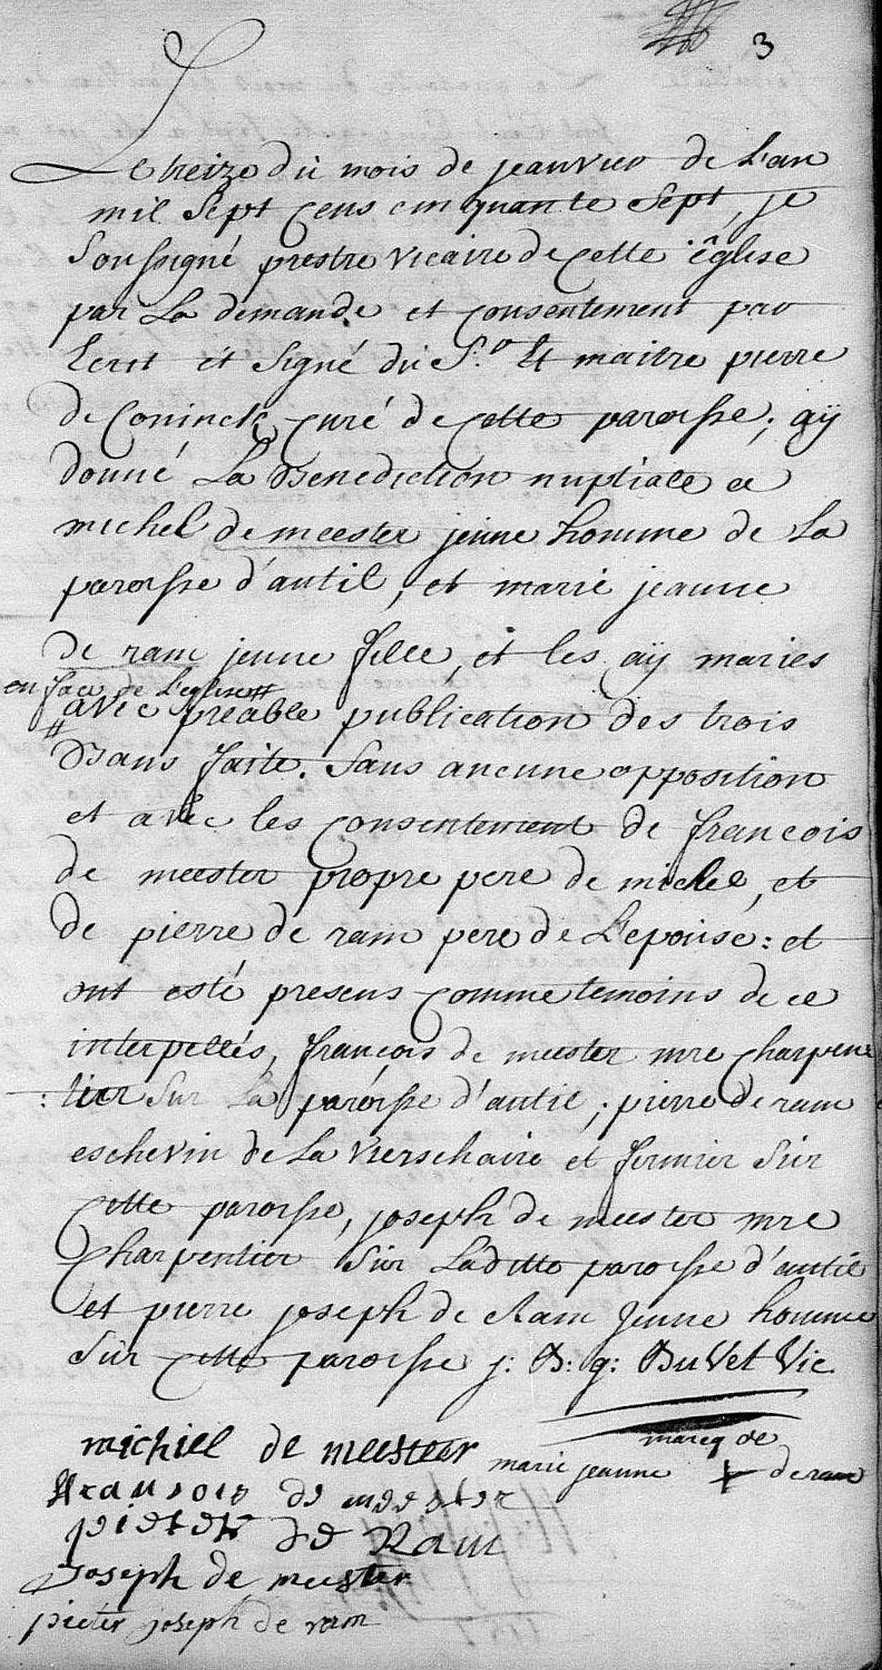 3
Le treize du mois de jeanvier de L'an
mil sept cens cinquante sept, je
soussigné prestre vicaire de cette église
par La demande et consentement par
Lecrit et signé du S.r Et maitre pierre
de Coninck curé de cette paroisse; ay
donné La Benediction nuptiale a
michel de meester jeune homme de La
paroisse d'autil, et marie jeanne
de ram jeune fille, et les aÿ maries
en face de L'eglise #
# avec preable publication des trois
Bans faite. sans aucune opposition
et avec les consentement de francois
de meester propre pere de michel, et
de pierre de ram pere de L'epouse: et
ont esté presens comme temoins de ce
interpellés, françois de meester mre charpen
:tier sur La paroisse d'autil; pierre de ram
eschevin de La vierschaire et fermier sur
cette paroisse, joseph de meester mre
charpentier sur Laditte paroisse d'autil
et pierre joseph de Ram jeune homme
sur cette paroisse j: B: g: BuVet Vic.
michiel de meesteer
marcq de
marie jeanne + de ram
fransois de meester
pieter de Ram
Joseph de meester
pieter joseph de ram